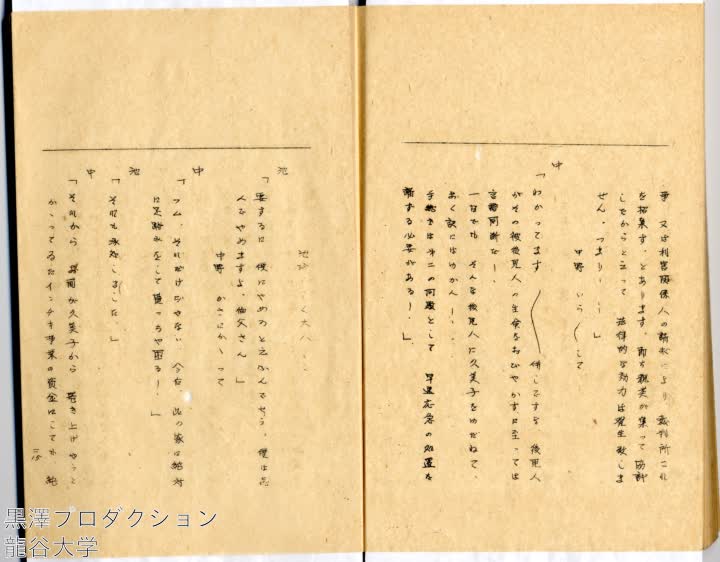 事 又は利害関係人の請求により 裁判所これ
を招集す、とあります。即ち親美が集って協議
したからと云って 法律的な効力は発生致しま
せん。つまり……」
中野 いらくして
中
「わかってます 併しですな 後見人
がその被後見人の生命をおびやかすに至っては
言語同断だ!
一なでも そんな後見人に久美子をゆだねて、
おく訳にはゆかん!
手続きは第二の問題として 早速応急の処置を
講ずる必要がある!」
池
「要するに 僕にやめろと云ふんでせう、僕は
人でやめますよ、伯父さん」
中野 かさにかゝって
中
「フム、それだけぢやない 今后、此の家には絶対
に足踏みをして貰っちゃ困る!」
池
「それも承知しました。」
中
「それから 君が久美子から 巻き上げやうと
かゝってるたインチキ事業の資金にこても 絶
黒澤プロダクション
龍谷大学